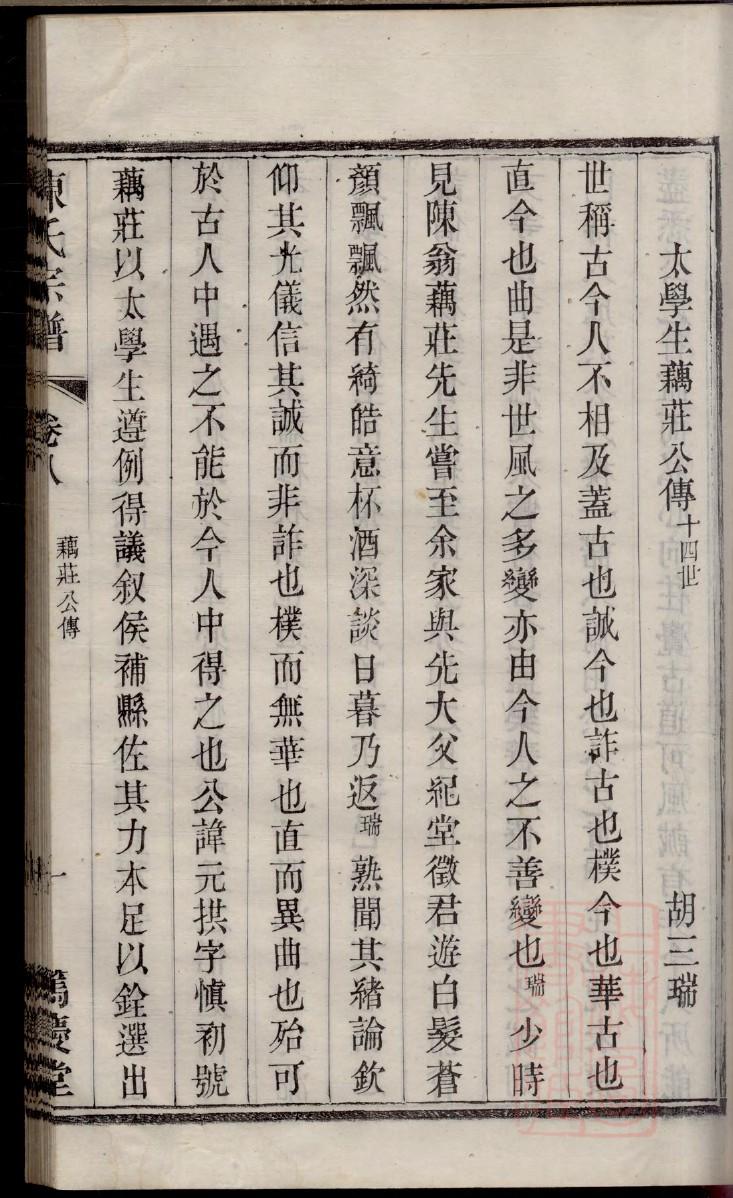 太學生藕莊公傳十四世 胡三瑞
世稱古今人不相及蓋古也誠今也詐古也樸今也華古也
直今也曲是非世風之多變亦由今人之不善變也瑞少時
見陳翁藕莊先生嘗至余家與先大父紀堂徵君遊白髮蒼
顏飄飄然有綺皓意杯酒深談日暮乃返瑞熟聞其緒論欽
仰其光儀信其誠而非詐也樸而無華也直而異曲也殆可
於古人中遇之不能於今人中得之也公諱元拱字慎初號
藕莊以太學生遵例得議叙侯補縣佐其力本足以銓選出
陳氏宗譜 卷八 藕莊公傳 一 篤慶堂